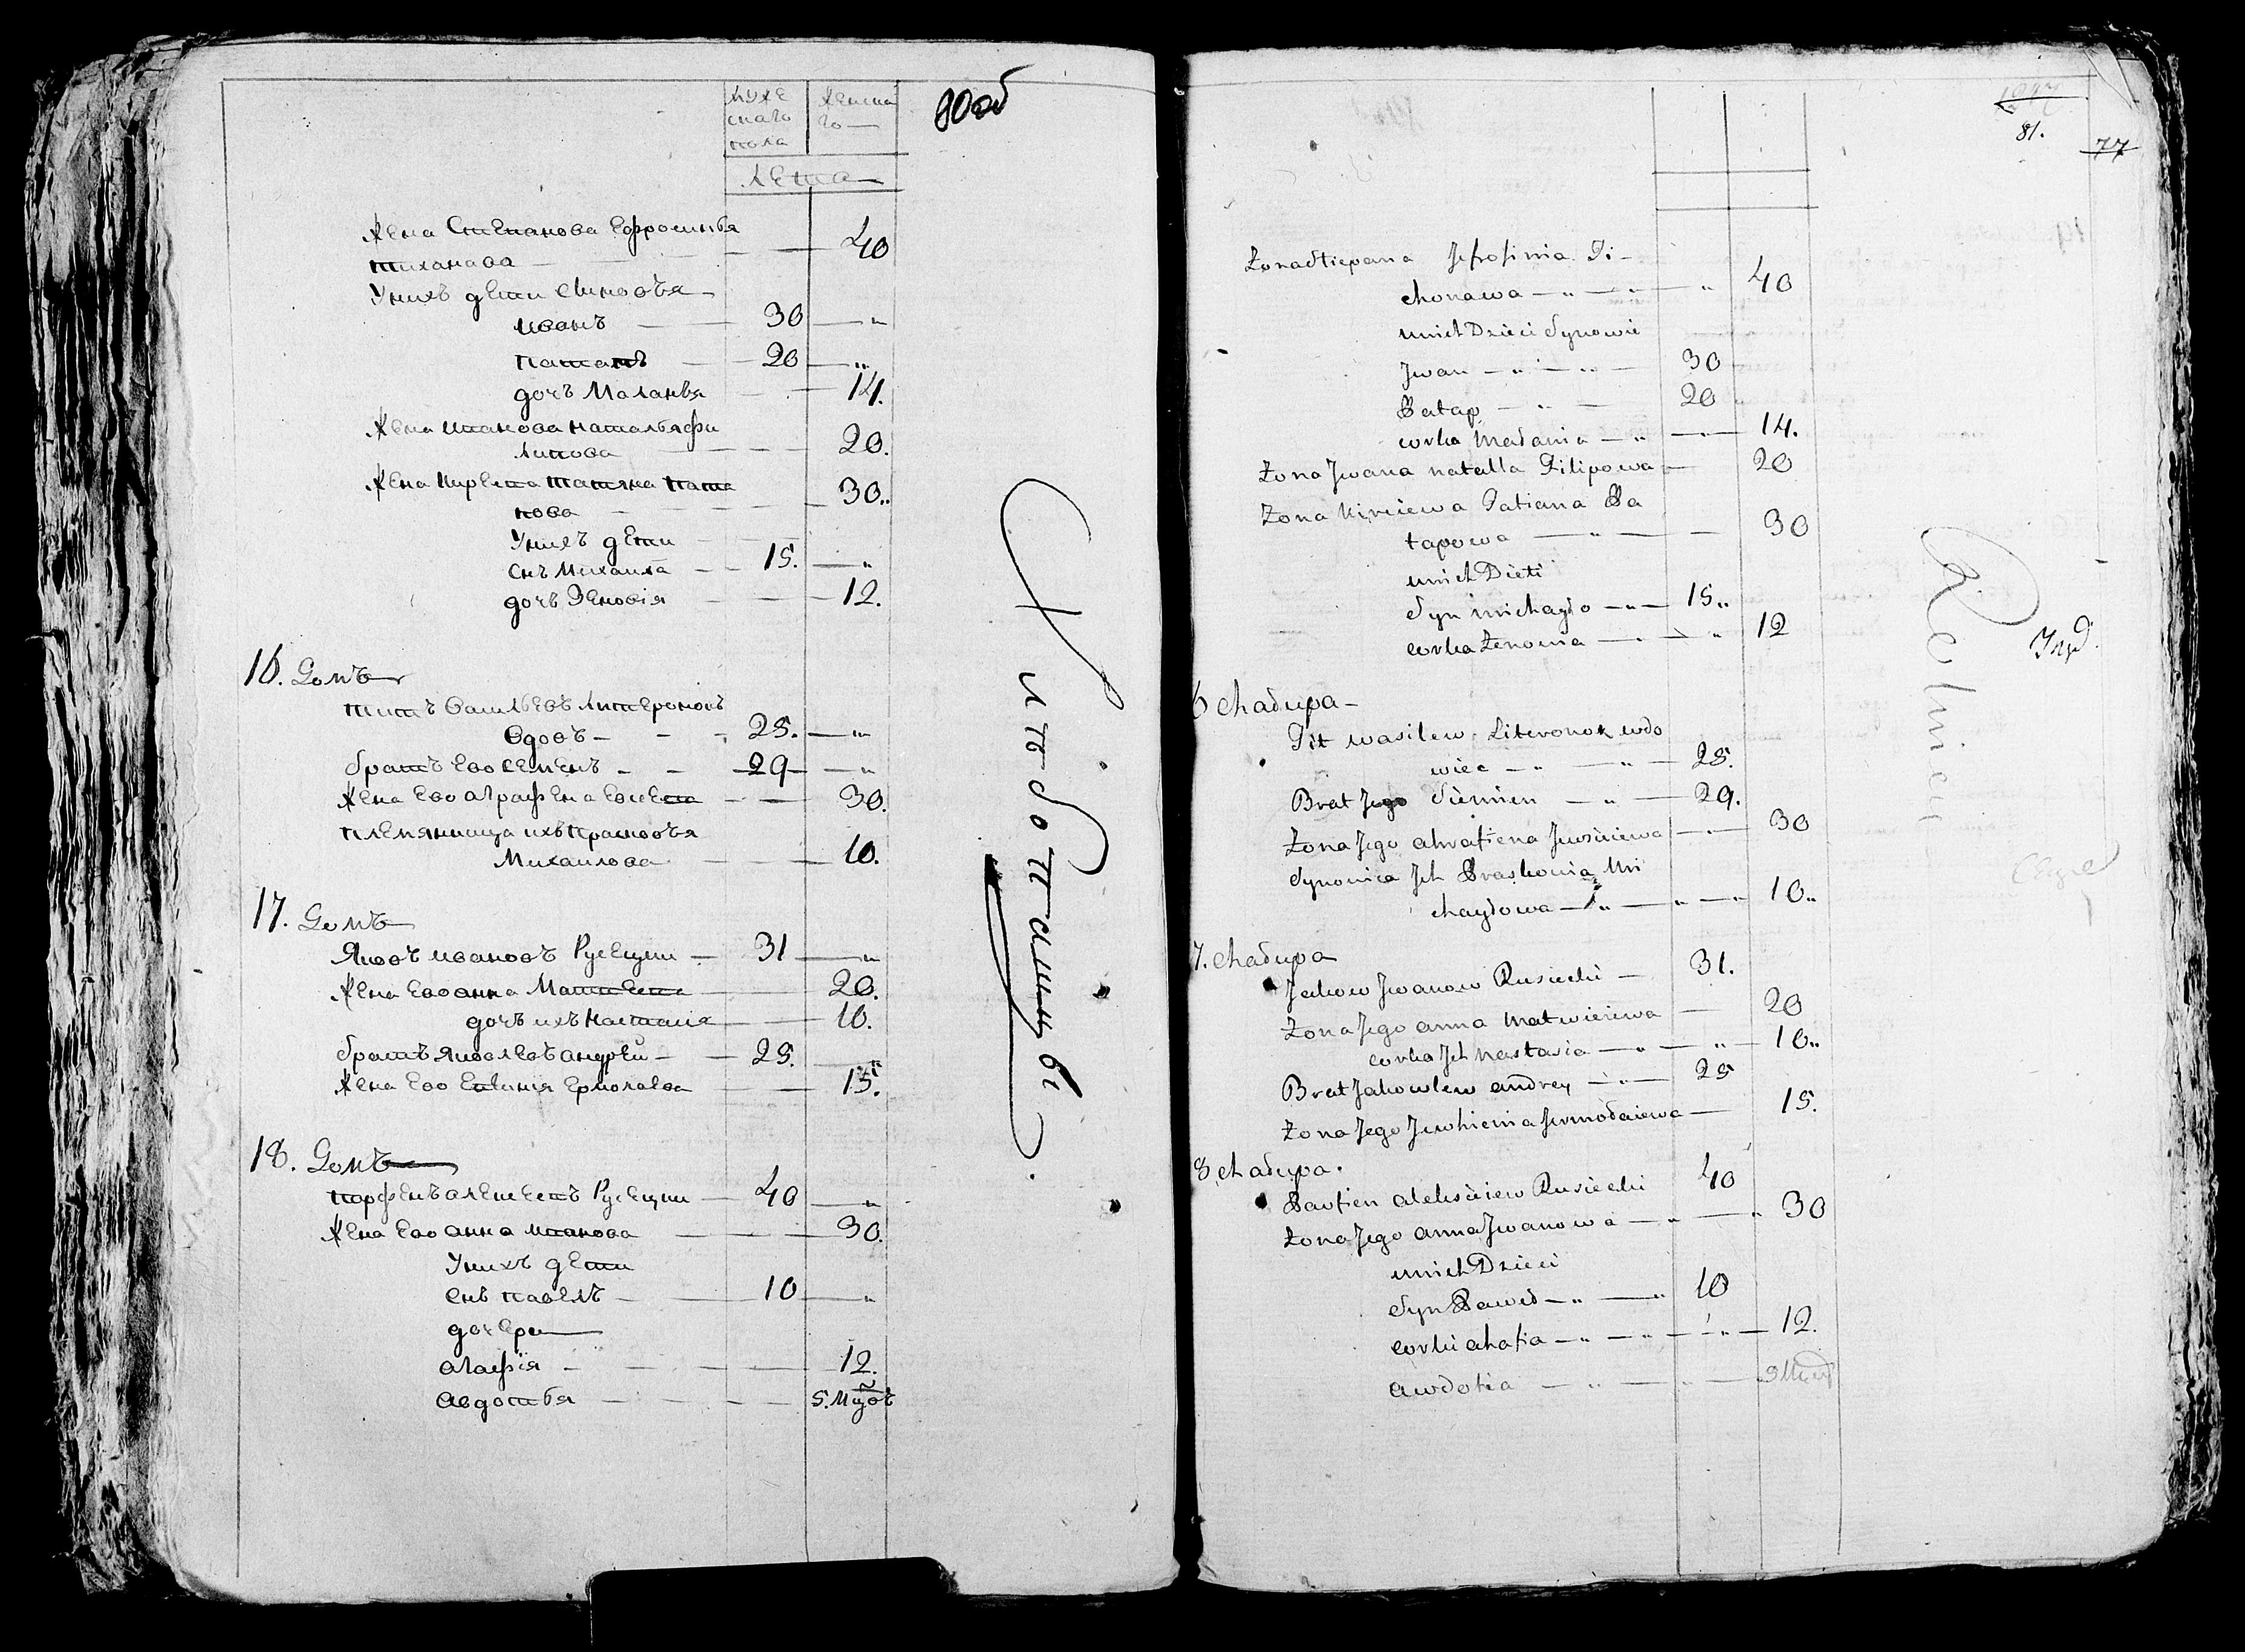 80об
муже
скаго
пола
женска
го
лета
жена Степанова Ефросинья
Тиханова 40
У них детеи синовья
иванъ 30
патапъ 20
дочь Маланья 14.
жена иванова наталья фи
липова 20.
жена кирѣева татяна пата
пова 30
У них дети
снъ михаила 15.
дочь Зеновія 12.
16. Домъ
титъ василѣвъ литеронокъ
вдовъ 25.
братъ ево семенъ 29
жена ево аграфена евсеева 30.
племянница ихъ прасковья
Михаилова 10.
17. Домъ
Яковъ ивановъ Русецки 31
жена ево анна Матвеева 20.
дочь ихъ настасия 10.
братъ яковлевъ андреи 25.
жена ево евгиния ермолаева 15.
18. Домъ
парфенъ алексеевъ Русецки 40
жена ево анна иванова 30.
У них дети
снъ павелъ 10
дочери
агафія 12.
авдотья 5.
81.
77
Żona Stiepana Jefrosinia Ti-
chonawa 40
unich Dzieci Synowie
Jwan 30
Patap 20
corka Małania 14.
Żona Jwana natalla Filipowa 20
Żona Kireiewa Tatiana Pa
tapowa 30
unich Dieti
Syn michayło 15
corka Zenowia 12
6 chałupa
Tit wasilew Literonok wdo
wiec 25.
Brat Jego Siemien 29.
Żona Jego ahrafiena Jewsieiewa 30
Synowica Jch Praskowia Mi
chayłowa 10
7. chałupa
Jakow Jwanow Rusiecki 31.
Żona Jego anna Matwieiewa 20
corka Jch Nastasia 10
Brat Jakowlew andrey 25
Żona Jego Jewhienia Jermołaiewa 15.
8 chałupa.
Parfien aleksieiew Rusiecki 40
Żona Jego anna Jwanowa 30
unich Dzieci
Syn Paweł 10
corki ahafia 12.
awdotia